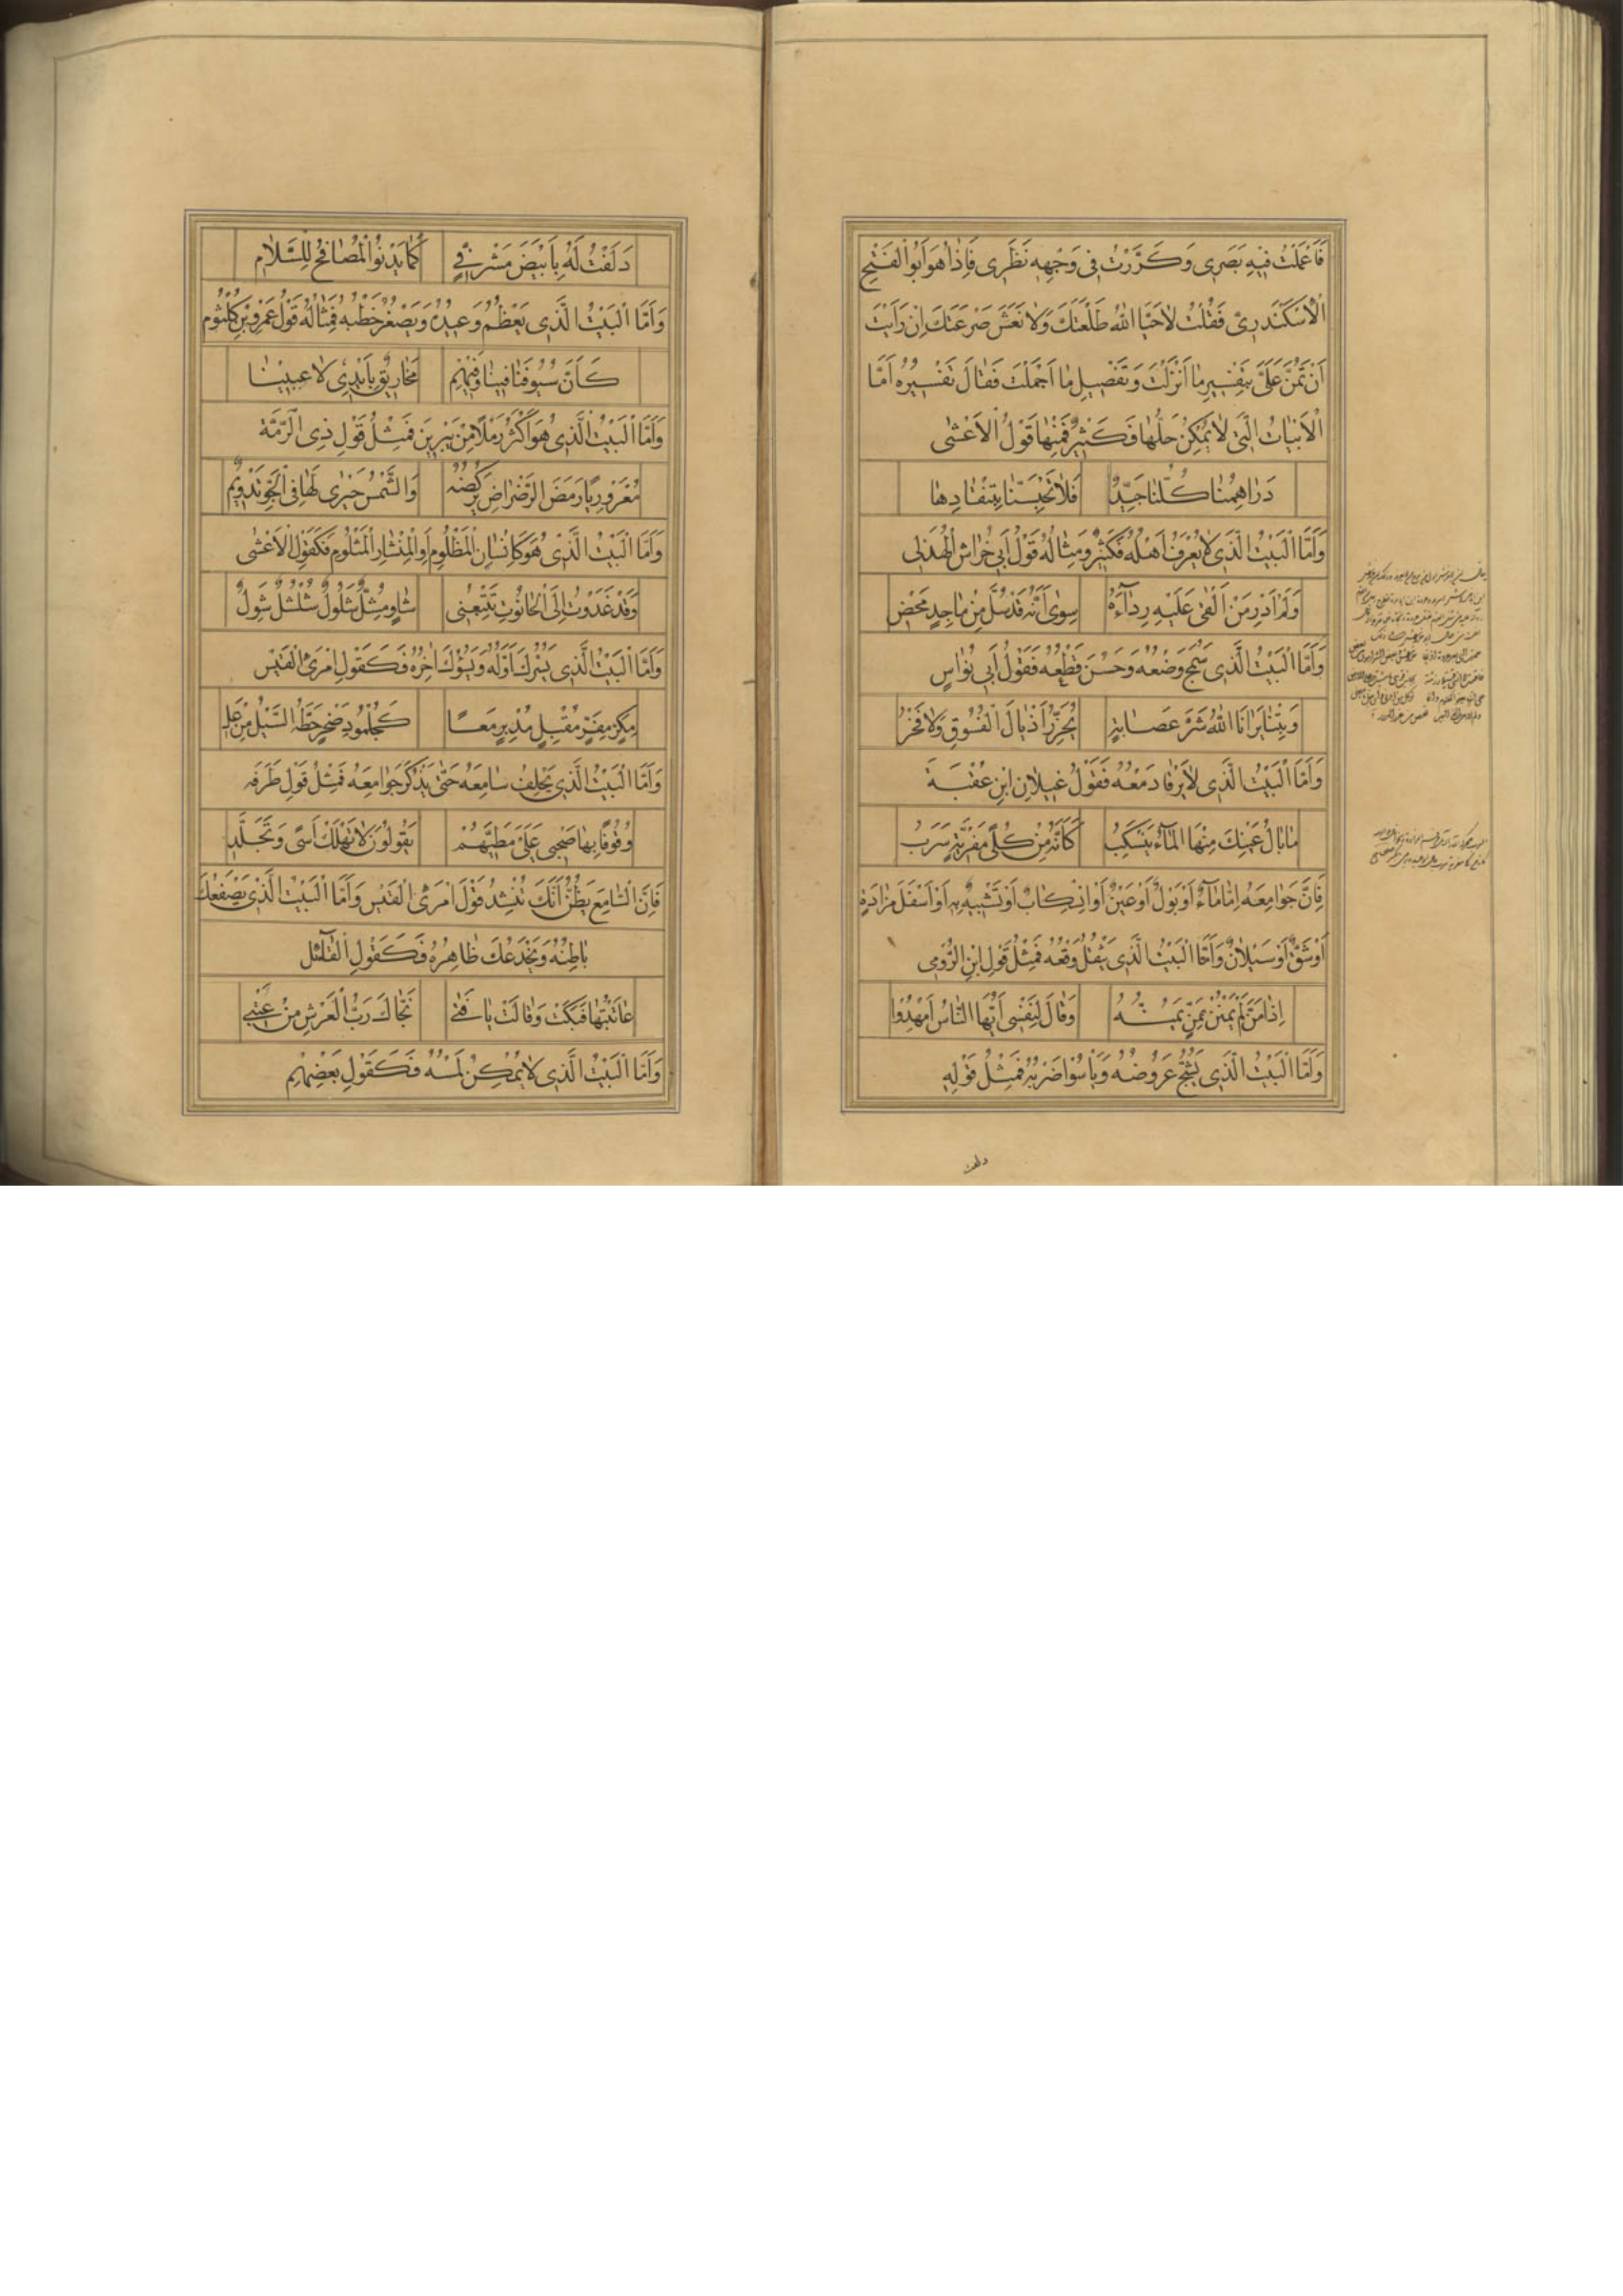 فَاَعْمَلْتُ فِيْهِ بَصَرِى وَكَرَّرْتُ فِى وَجْهِهِ نَظَرِى فَاِذَا هُوَ اَبُو الْفَتْحِ
الْاَسْكَنْدَرِىُّ فَقُلْتُ لَا حَيَّا اللّٰهُ طَلْعَتَكَ وَلَا نَعَشَ صَرْعَتَكَ اِنْ رَاَيْتَ
اَنْ تَمُنَّ عَلَىَّ بِتَفْسِيرِ مَا اَنْزَلْتَ وَتَفْصِيلِ مَا اَجْمَلْتَ فَقَالَ تَفْسِيْرُهُ اَمَّا
الْاَبْيَاتُ الَّتِى لَا يُمْكِنُ حَلُّهَا فَكَثِيْرٌ فَمِنْهَا قَوْلُ الْاَعْشٰى
دَرَاهِمُنَا كُلُّنَا جَيِّدٌ فَلَا تَحْبِسَنَّا بِتَنْقَادِهَا
وَاَمَّا الْبَيْتُ الَّذِى لَا يُعْرَفُ اَهْلُهُ فَكَثِيْرٌ وَمِثَالُهُ قَوْلُ اَبِى خِرَاشِ الْهُذَلِى
وَلَمْ اَدْرِ مَنْ اَلْقٰى عَلَيْهِ رِدَآءَهُ سِوٰى اَنَّهُ قَدْ سُلَّ مِنْ مَاجِدٍ مَحْضِ
وَاَمَّا الْبَيْتُ الَّذِى سَمُجَ وَضْعُهُ وَحَسُنَ قَطْعُهُ فَقَوْلُ اَبِى نُوَاسٍ
وَبِتْنَا يَرَانَا اللّٰهُ شَرَّ عَصَابَةٍ تُجَرِّرُ اَذْيَالَ الْفُسُوْقِ وَلَا فَخْرُ
وَاَمَّا الْبَيْتُ الَّذِى لَا يَرْقَا دَمْعُهُ فَقَوْلُ غَيْلَانَ ابْنِ عُقْبَةَ
مَا بَالُ عَيْنِكَ مِنْهَا الْمَآءُ يَنْسَكِبُ كَاَنَّهُ مِنْ كُلًى مَفْرِيَّةٍ سَرَبُ
فَاِنَّ جَوَامِعَهُ اِمَّا مَآءٌ اَوْ بَوْلٌ اَوْ عَيْنٌ اَوِ انْسِكَابٌ اَوْ تَشْبِيْهٌ بِهِ اَوْ اَسْفَلَ مَزَادَةٍ
اَوْ شَقٌّ اَوْ سَيَلَانٌ وَاَمَّا الْبَيْتُ الَّذِى يَثْقُلُ وَقْعُهُ فَمِثْلُ قَوْلِ ابْنِ الرُّوْمِى
اِذَا مَنَّ لَمْ يَمْنُنْ بِمَنٍّ يَمُنُّهُ وَقَالَ لِنَفْسِى اَيُّهَا النَّاسُ اَمْهِدُوْا
وَاَمَّا الْبَيْتُ الَّذِى يَشُجُّ عَرُوْضُهُ وَيَاْسُوْا ضَرْبُهُ فَمِثْلُ قَوْلِهِ
دلفت
دَلَفْتُ لَهُ بِاَبْيَضَ مَشْرَفِىٍّ كَمَا يَدْنُو الْمُصَافِحُ لِلسَّلَامِ
وَاَمَّا الْبَيْتُ الَّذِى يَعْظُمُ وَعِيْدُهُ وَيَصْغُرُ خَطْبُهُ فَمِثَالُهُ قَوْلُ عَمْرِو بْنِ كُلْثُوْم
كَاَنَّ سُيُوْفَنَا فِيْنَا وَفِيْهِمْ مَخَارِيْقٌ بِاَيْدِى لَاعِبِيْنَا
وَاَمَّا الْبَيْتُ الَّذِى هُوَ اَكْثَرُ رَمْلًا مِنْ يَبْرِيْنَ فَمِثْلُ قَوْلِ ذِى الرُّمَّةِ
مُعْرَوْرِيًا رَمَضَ الرَّضْرَاضِ يَرْكُضُهُ وَالشَّمْسُ حَيْرٰى لَهَا فِى الْجَوِّ تَدْوِيْمُ
وَاَمَّا الْبَيْتُ الَّذِى هُوَ كَاَسْنَانِ الْمَظْلُوْمِ اَوِ الْمِنْشَارِ الْمَثْلُوْمِ فَكَقَوْلِ الْاَعْشٰى
وَقَدْ غَدَوْتُ اِلَى الْحَانُوْتِ يَتْبَعُنِى شَاوٍ مِشَلٌّ شَلُوْلٌ شُلْشُلٌ شَوِلُ
وَاَمَّا الْبَيْتُ الَّذِى يَسُرُّكَ اَوَّلُهُ وَيَسُوْؤُكَ اٰخِرُهُ فَكَقَوْلِ امْرَئِ الْقَيْسِ
مِكَرٍّ مِفَرٍّ مُقْبِلٍ مُدْبِرٍ مَعًا كَجُلْمُوْدِ صَخْرٍ حَطَّهُ السَّيْلُ مِنْ عَلِ
وَاَمَّا الْبَيْتُ الَّذِى يَحْلِفُ سَامِعَهُ حَتّٰى يَذْكُرَ جَوَامِعَهُ فَمِثْلُ قَوْلِ طَرَفَه
وُقُوْفًا بِهَا صَحْبِى عَلَىَّ مَطِيَّهُمْ يَقُوْلُوْنَ لَا تَهْلَكْ اَسًى وَتَجَلَّدِ
فَاِنَّ السَّامِعَ يَظُنُّ اَنَّكَ تُنْشِدُ قَوْلَ امْرَئِ الْقَيْسِ وَاَمَّا الْبَيْتُ الَّذِى يَصْفَعُكَ
بَاطِنُهُ وَيَخْدَعُكَ ظَاهِرُهُ فَكَقَوْلِ الْقَآئِل
عَاتَبْتُهَا فَبَكَتْ وَقَالَتْ يَا فَتٰى نَجَّاكَ رَبُّ الْعَرْشِ مِنْ عَتْبِى
وَاَمَّا الْبَيْتُ الَّذِى لَا يُمْكِنُ لَمْسُهُ فَكَقَوْلِ بَعْضِهِمْ